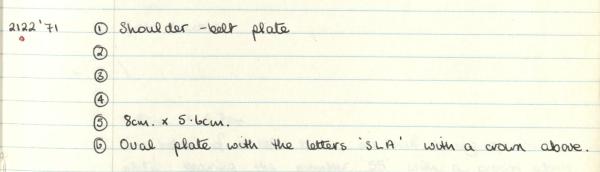 2122'71 ① Shoulder-belt plate
②
③
④
⑤ 8cm. x 5.6cm.
⑥ Oval plate with the letters 'SLA' with a crown above.